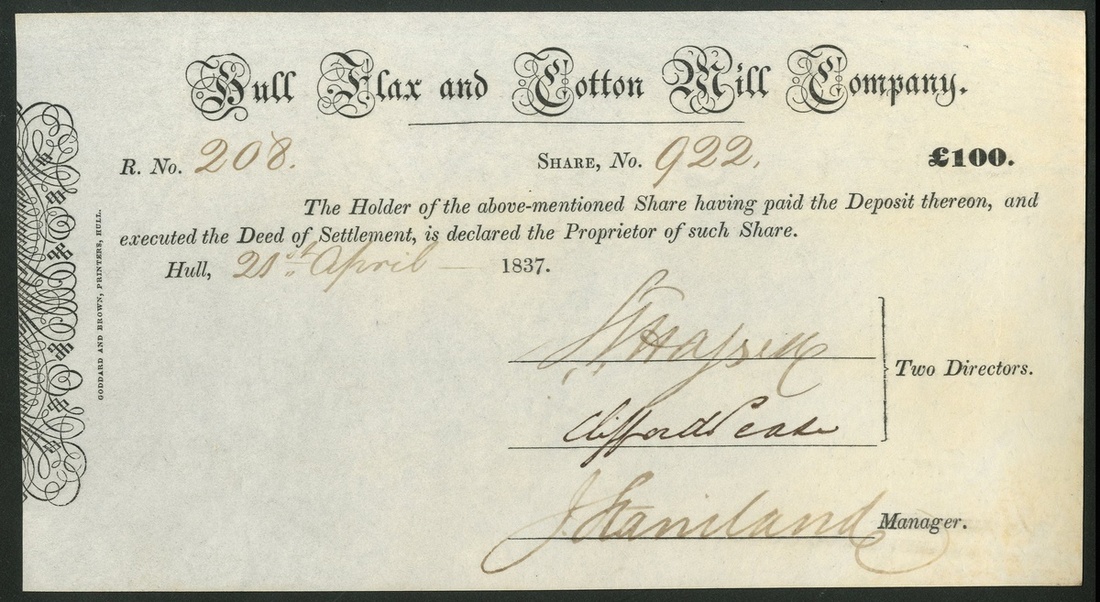 Hull Flax and Cotton Mill Company.
R. No. 208. Share, No. 922. £100.
The Holder of the above-mentioned Share having paid the Deposit thereon, and
executed the Deed of Settlement, is declared the Proprietor of such Share.
Hull, 21st April 1837.
Two Directors.
Clifford Pease
J Staniland Manager.
GODDARD AND BROWN, PRINTERS, HULL.